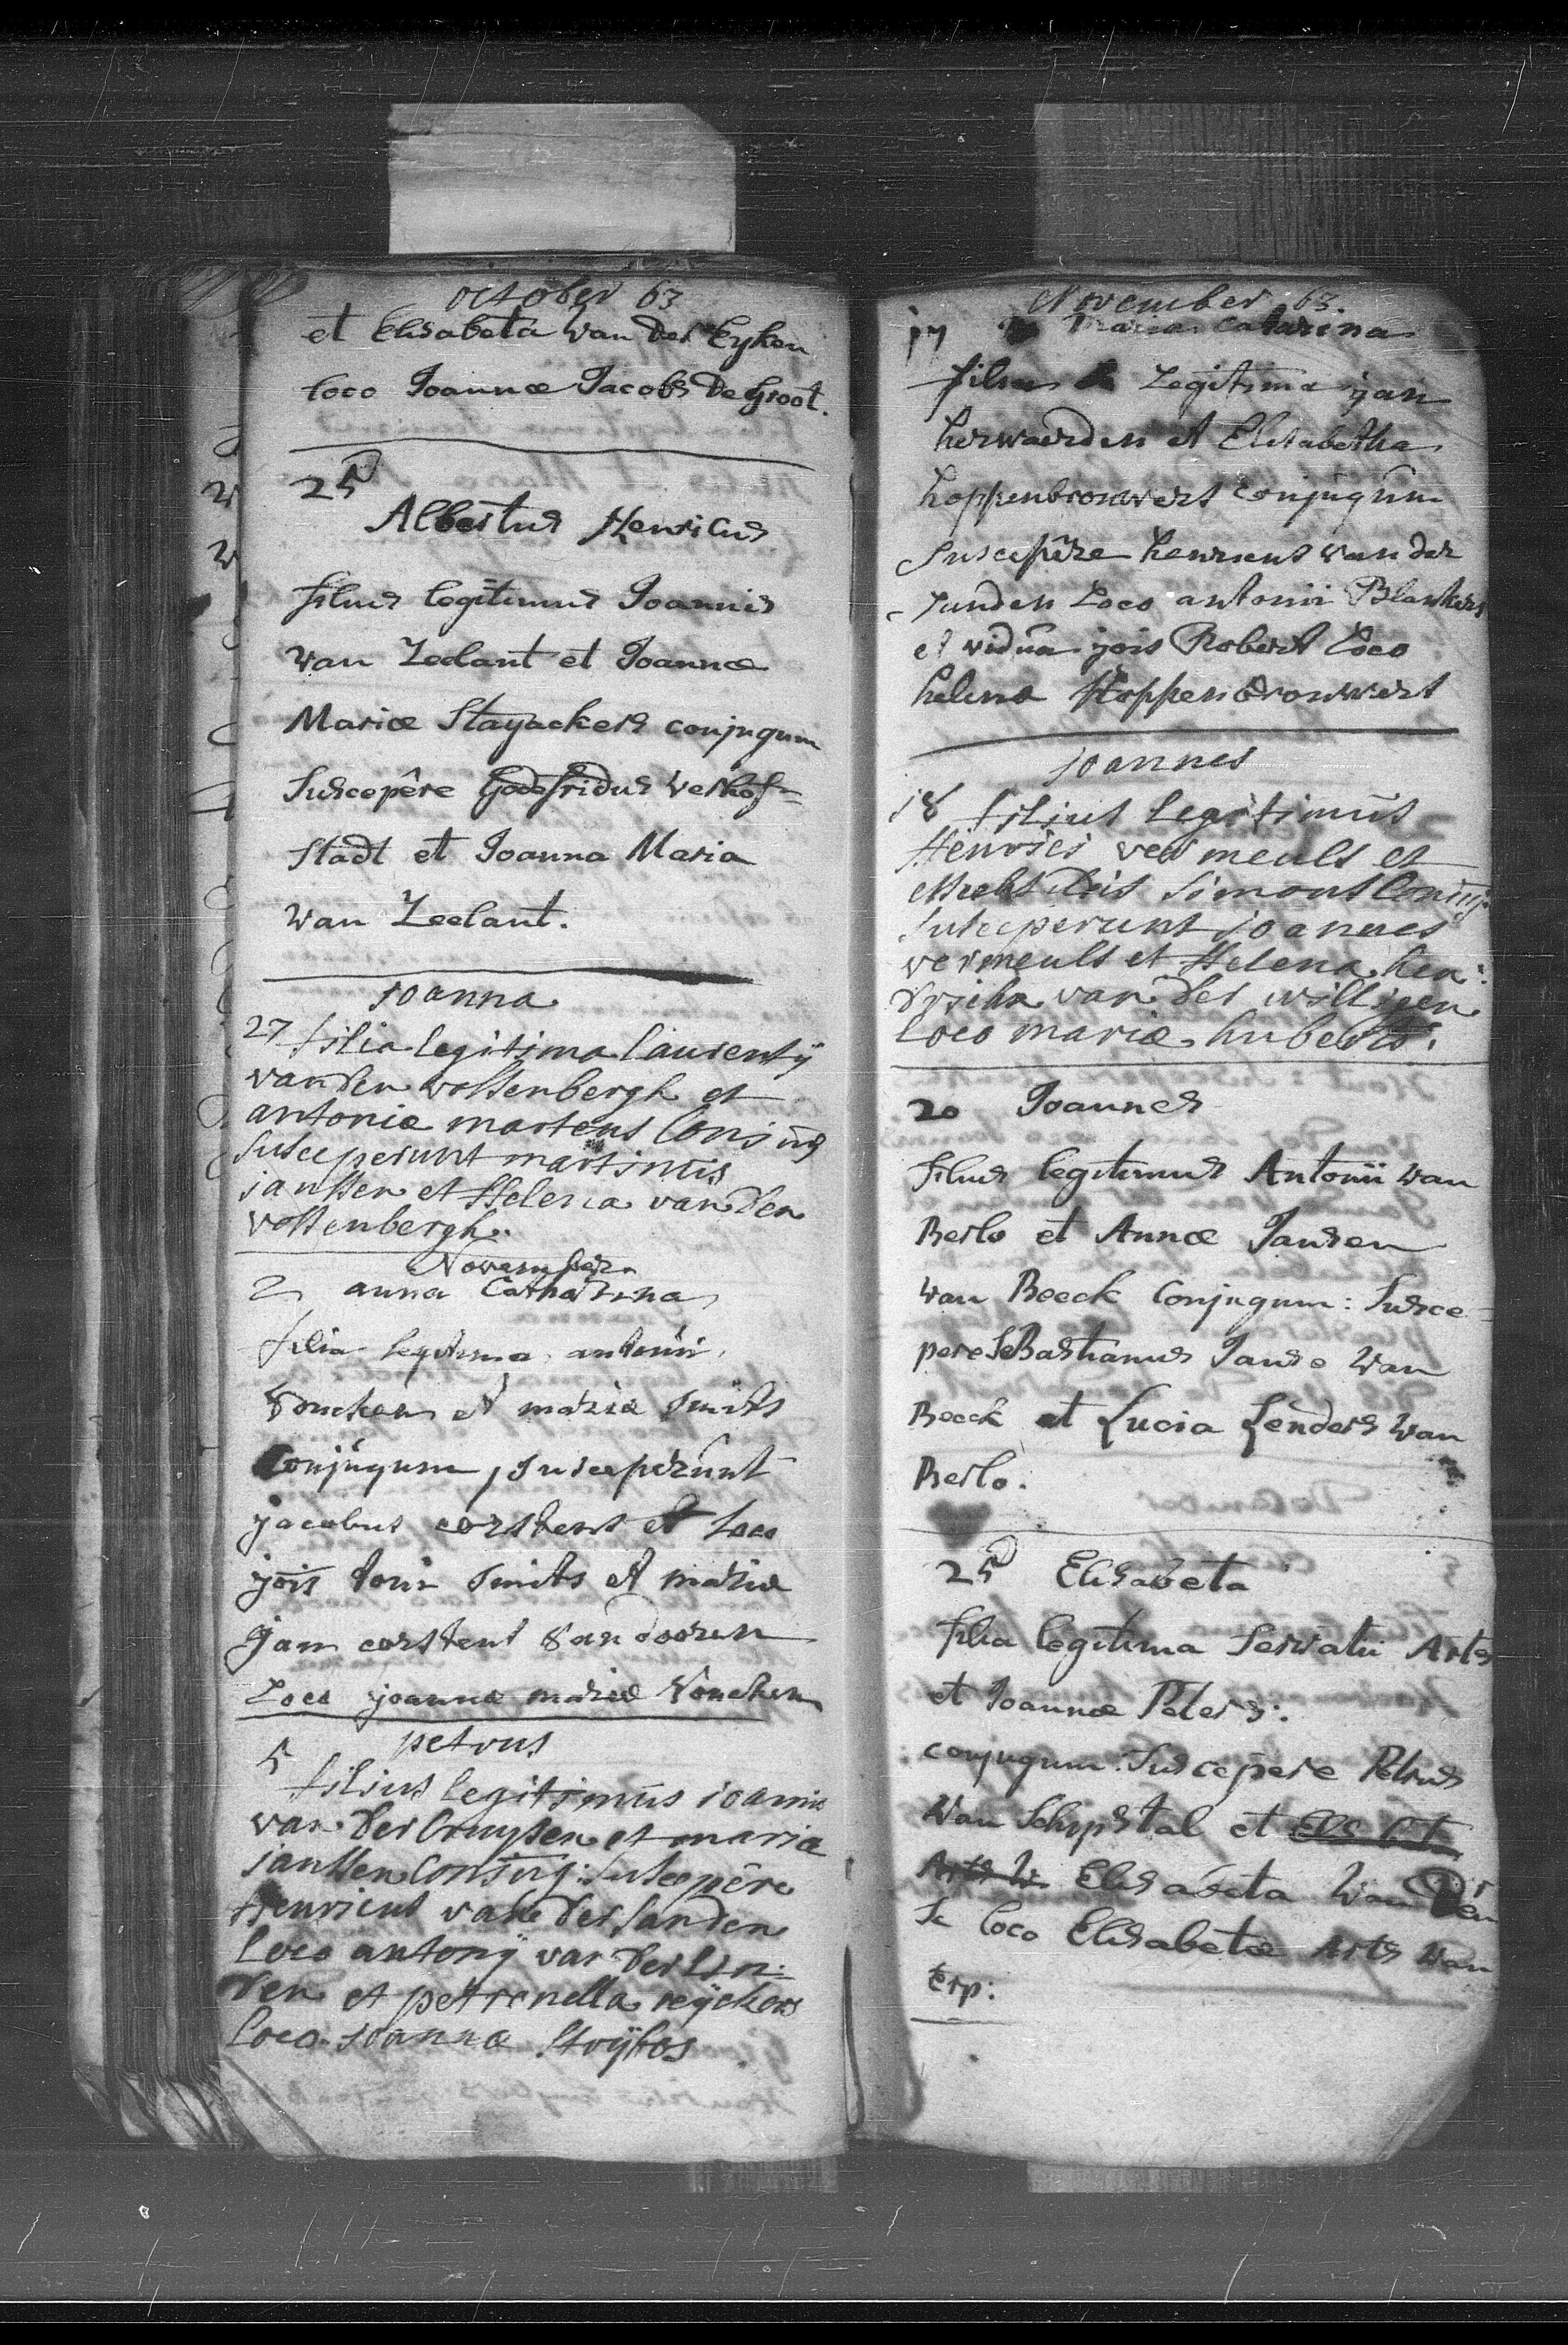 october 63
et Elisabeta Van Der Eyken
loco Joannæ Jacobs De Groot.
25
Albertus Henricus
filius legitimus Joannis
van Zeelant et Joannæ
Mariæ Stayackers conjugum
Suscepêre Godefridus Verhof=
stadt et Joanna Maria
van Zeelant.
joanna
27 filia legitima laurentÿ
van den vossenbergh et
antoniæ martens Coniug
susceperunt martinus
janssen et Helena van den
vossenbergh.
November
2 anna Catharina
filia legitima antonii
Voncken et mariæ smits
Conjugum, susceperunt
jacobus corstens et loco
jois smits et maria
jan corstens van dooren
Loco joannæ mariæ Voncken
petrus
5 filius legitimus ioannis
van der Cruysen et mariæ
janssen Coniug: suscepêre
Henricus van der sanden
loco antonÿ van der lin=
den et petronella reÿckers
loco joannæ Strÿbos
November 63.
17 Maria Catarina
filia Legitima jan
herwaerden et Elisabetha
hoppenbrouwers conjugum
suscepêre henricus van der
sanden Loco antonii Blankers
et vidua jois Robert Loco
helena Hoppenbrouwers
joannes
18 filius legitimus
Henrici vermeuls et
Simons Coniug
susceperunt joannes
vermeuls et Helena hen=
drickx van der willigen
loco mariæ huberts.
20 Joannes
filius legitimus Antonii van
Berlo et Annæ Jansen
van Beeck Conjugum: Susce=
pere Sebastianus Janse van
Beeck et Lucia Lenders van
Berlo.
25 Elisabeta
filia legitima Servatii Arts
et Joannæ Peters:
conjugum: Suscepere Petrus
van Schypstal et
Elisabeta van Den
loco Elisabetæ Arts van
Erp: